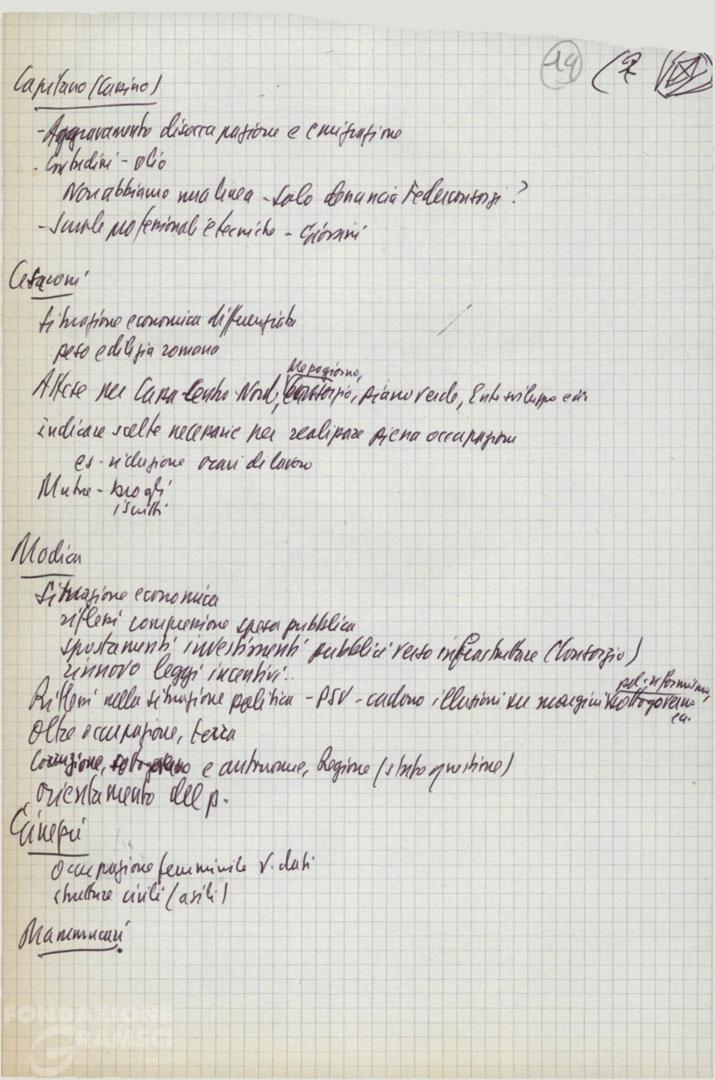 19 (2
Capitano (Cassino)
- Aggravamento disoccupazione e emigrazione
- Contadini - olio
Non abbiamo una linea - Solo denuncia Federconsorzi?
- Scuole professionali e tecniche - Giovani
Cesaroni
Situazione economica differenziata
peso edilizia romana
Attese per Cassa Centro-Nord, Mezzogiorno, Consorzio, piano verde, Ente sviluppo ecc.
indicare scelte necessarie per realizzare piena occupazione
es - riduzione orari di lavoro
Mutue - brogli
iscritti
Modica
Situazione economica
riflessi compressione spesa pubblica
spostamenti investimenti pubblici verso infrastrutture (Consorzio)
rinnovo leggi incentivi..
Riflessi nella situazione politica - PSU - cadono illusioni su margini pol. riformismo, sottogoverno ecc.
Oltre occupazione, terra
Corruzione, sottogoverno e autonomie, Regione (stato questione)
orientamento del p.
Ginepri
Occupazione femminile v. dati
strutture civili (asili)
Mammucari
FONDAZIONE
GRAMSCI